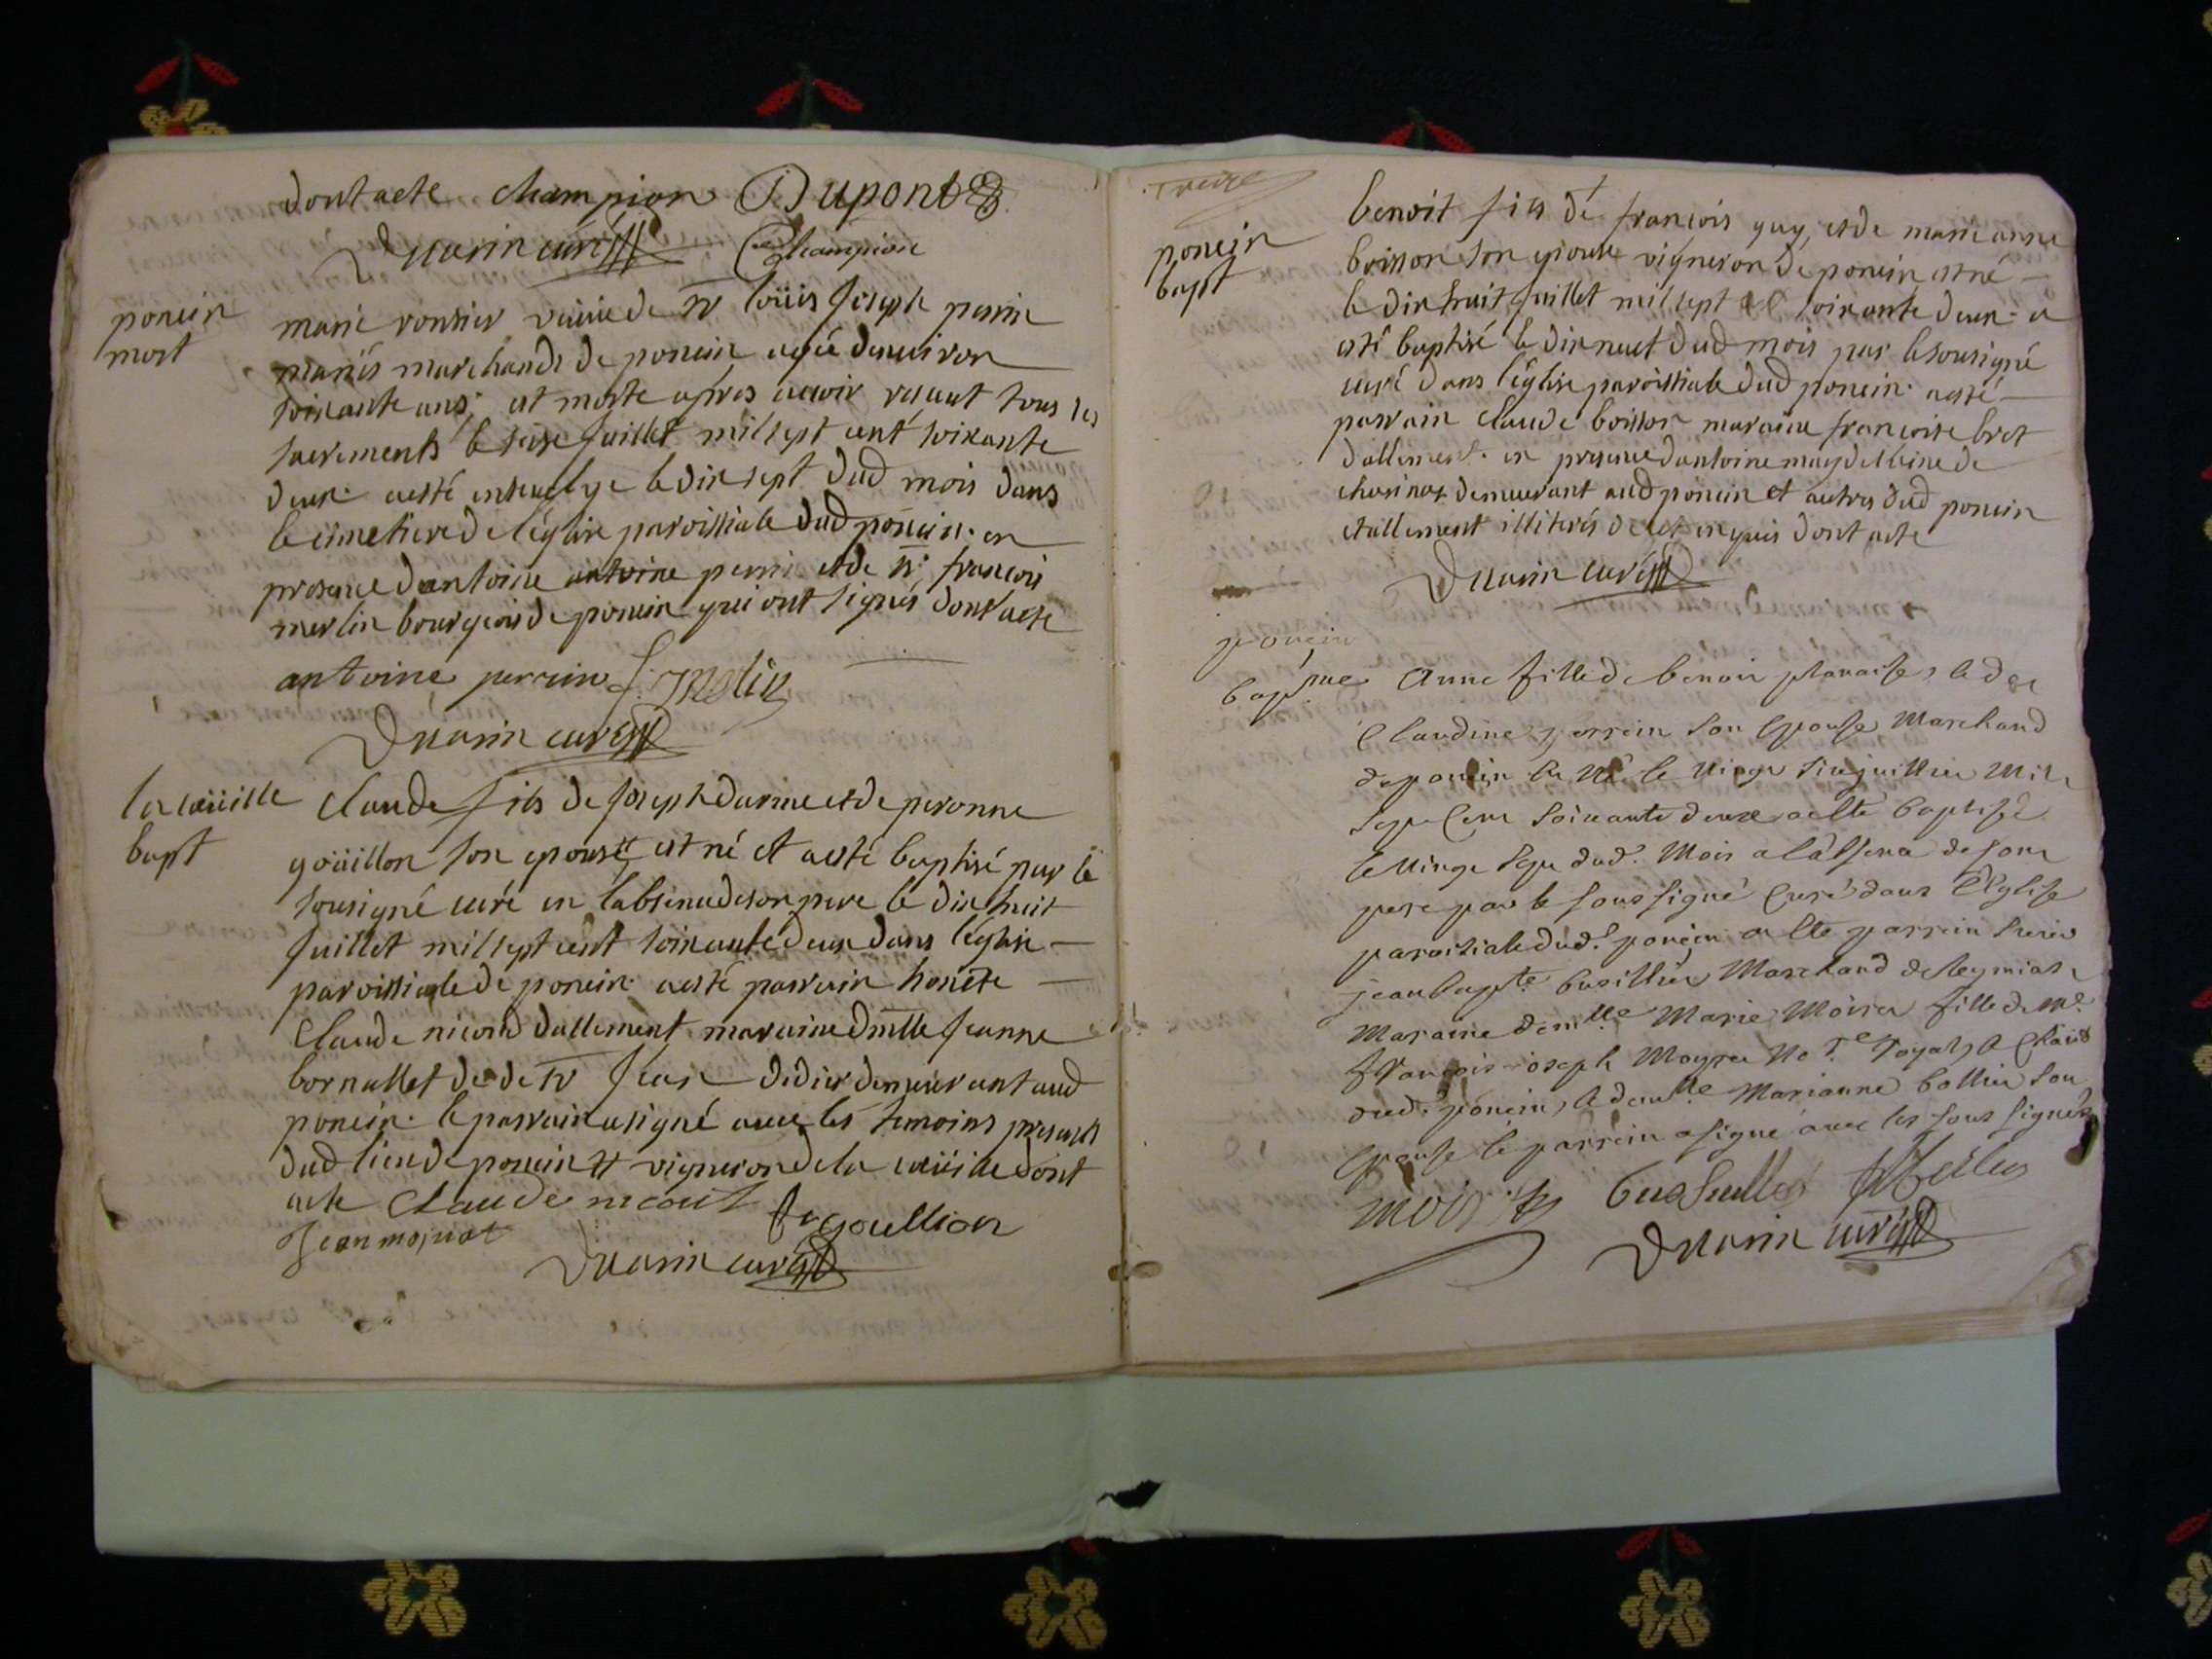 dont acte champion Dupont
Duvarin curé Champion
poncin
mort
marie ronsier veuve de Sr loüis Joseph perrin
mariés marchands de poncin agée denuiron
soixante ans, est morte apres auoir resceut tous les
sacrements le seise Juillet mil sept cent soixante
deux. aesté enseuelye le dix sept dud mois dans
le cimetiere de léglise paroissiale dud poncin. en
presence dantoine antoine perrin et de Sr françois
merlin bourgeois de poncin qui ont signés dont acte
antoine perrin f. merlin
Duvarin curé
la cüeille
bapt
Claude fils de Joseph darme et de peronne
goüillon son epouse est né et aesté baptisé par le
sousigné curé en labsence de son pere le dix huit
Juillet mil sept cent soixante deux dans léglise
paroissiale de poncin. aesté parrain honéte
Claude nicoud dallement maraine dmlle Jeanne
bornallet de de Sr Jean didier demeurant aud
poncin. le parrain a signé auec les temoins presents
dud lieu de poncin et vigneron de la cüeille dont
acte Claude nicout goullion
Jean mornat
Duvarin curé
treize
poncin
bapt
benoit fils de françois guy, et de marie anne
boisson son epouse vigneron de poncin est né
le dix huit Juillet mil sept soixante deux. a
esté baptisé le dix neuf dud mois par le sousigné
curé dans léglise paroissiale dud poncin. aesté
parrain claude boisson maraine françoise bret
dallement. en presence dantoine
demeurant aud poncin et autres dud poncin
et allement illiterés de ce enquis dont acte
Duvarin curé
poncin
bapme
Anne fille de benoit plansise, et de
Claudine perrein son Epouse Marchand
de poncin Est Née le Vingt Sinq juillier Mil
Sept Cent Soixante deux a esté baptisée
le Vingt Sept dud. Mois a labsence de son
pere par le sous signé Curé dans l'Eglise
paroisiale dud. poncin a esté parrein sieur
jean bapte Marchand de leymiat
Maraine demlle Marie Moirea fille de Me
françois joseph Moyrea Nore Royal, & Chaid
dud. poncin, & demlle Marianne bollier son
Epouse le parrein a signé avec les sous signés
moirea
Duvarin curé